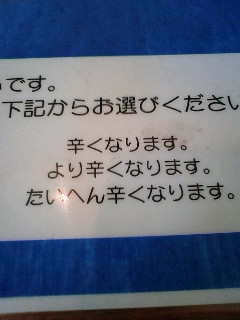 です。
下記からお選びください
辛くなります。
より辛くなります。
たいへん辛くなります。